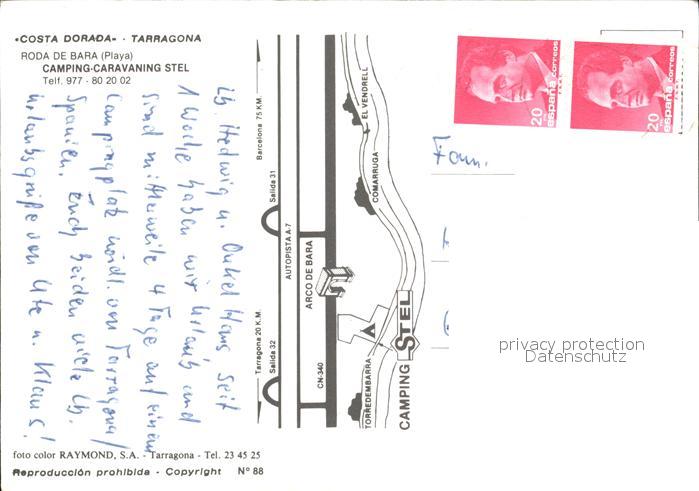 «COSTA DORADA» - TARRAGONA
RODA DE BARA (Playa)
CAMPING-CARAVANING STEL
Telf. 977 - 80 20 02
lb. Hedwig u. Onkel Hans seit
1 Woche haben wir Urlaub und
sind mittlerweile 4 Tage auf einem
Campingplatz nördl. von Tarragona/
Spanien. Euch beiden viele lb.
Urlaubsgrüße von Ute u. Klaus!
Barcelona 75 KM.
Salida 31
Tarragona 20 KM.
Salida 32
AUTOPISTA A-7
ARCO DE BARA
CN-340
EL VENDRELL
COMARRUGA
TORREDEMBARRA
CAMPING STEL
20 españa correos
20 españa correos
Fam.
privacy protection
Datenschutz
foto color RAYMOND, S.A. - Tarragona - Tel. 23 45 25
Reproducción prohibida - Copyright Nº 88